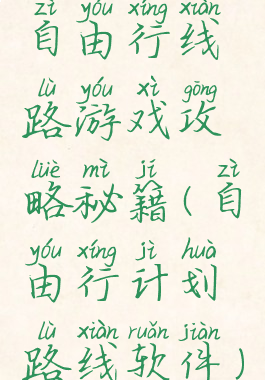 zì yóu xíng xiàn
自由行线
lù yóu xì gōng
路游戏攻
lüè mì jí zì
略秘籍(自
yóu xíng jì huà
由行计划
lù xiàn ruǎn jiàn
路线软件)